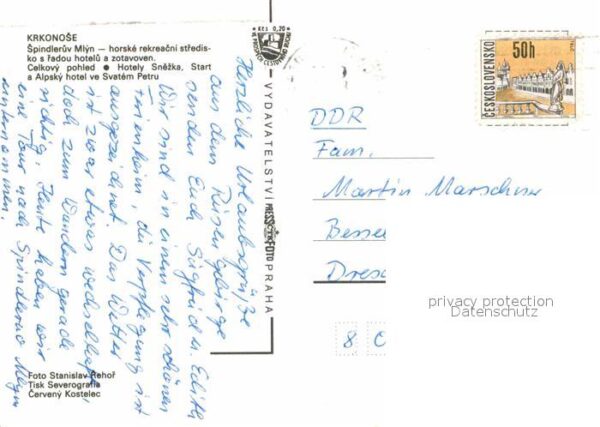 KRKONOŠE
Špindlerův Mlýn — horské rekreační středis-
ko s řadou hotelů a zotavoven.
Celkový pohled ● Hotely Sněžka, Start
a Alpský hotel ve Svatém Petru
Herzliche Urlaubsgrüße
aus dem Riesengebirge
senden Euch Siegfried u. Edith
Wir sind in einem sehr schönen
Ferienheim, die Verpflegung ist
ausgezeichnet. Das Wetter
ist zwar etwas wechselhaft,
doch zum Wandern gerade
richtig. Heute haben wir
eine Tour nach Spindleruv Mlyn
unternommen.
Foto Stanislav Řehoř
Tisk Severografia
Červený Kostelec
Kčs 0,20
VYDAVATELSTVÍ PRESSFOTO PRAHA
ČESKOSLOVENSKO
50h
DDR
Fam.
Martin Marschner
Dresd
8
privacy protection
Datenschutz